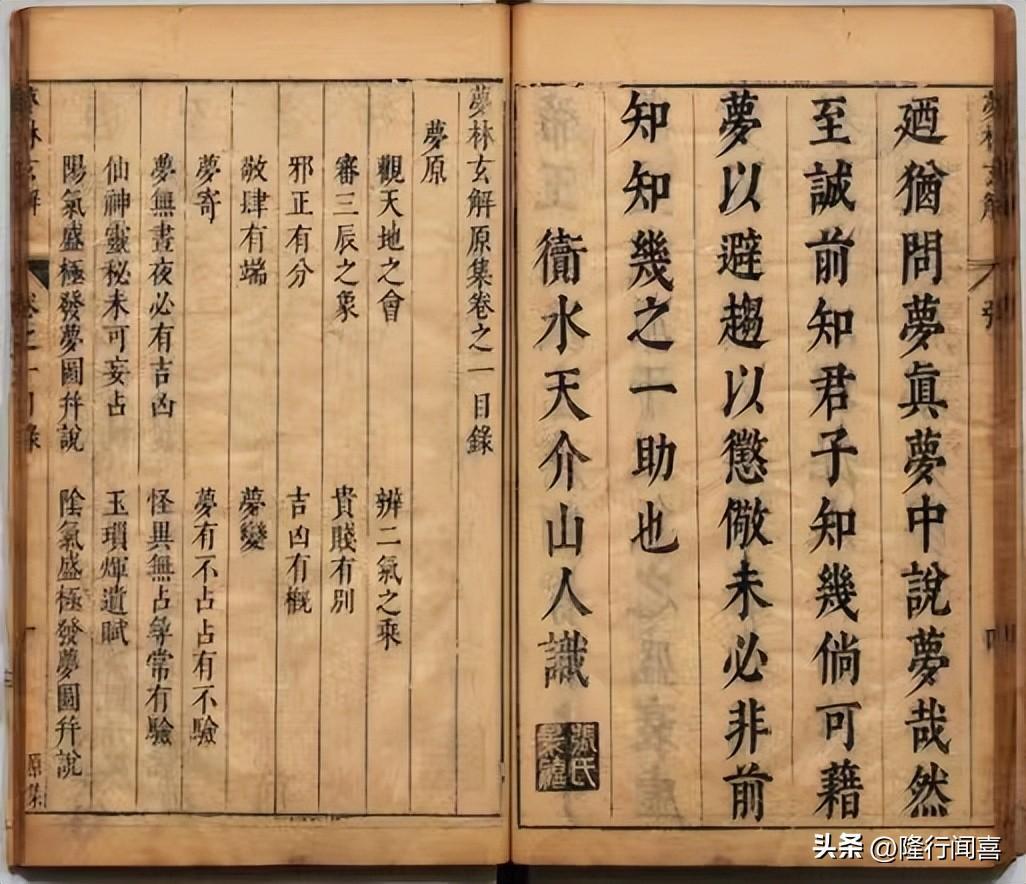 廼猶問夢眞夢中說夢哉然
至誠前知君子知幾倘可藉
夢以避趨以懲儆未必非前
知知幾之一助也
衛水天介山人識
張氏
夢林玄解原集卷之一目錄
夢原
觀天地之會
辨二氣之乘
審三辰之象
貴賤有別
邪正有分
吉凶有概
敬肆有端
夢變
夢寄
夢有不占占有不驗
夢無晝夜必有吉凶
怪異無占尋常有驗
仙神靈秘未可妄占
玉瑣煇遺賦
陽氣盛極發夢圖幷說
陰氣盛極發夢圖幷說
原集
头条 @隆行闻喜